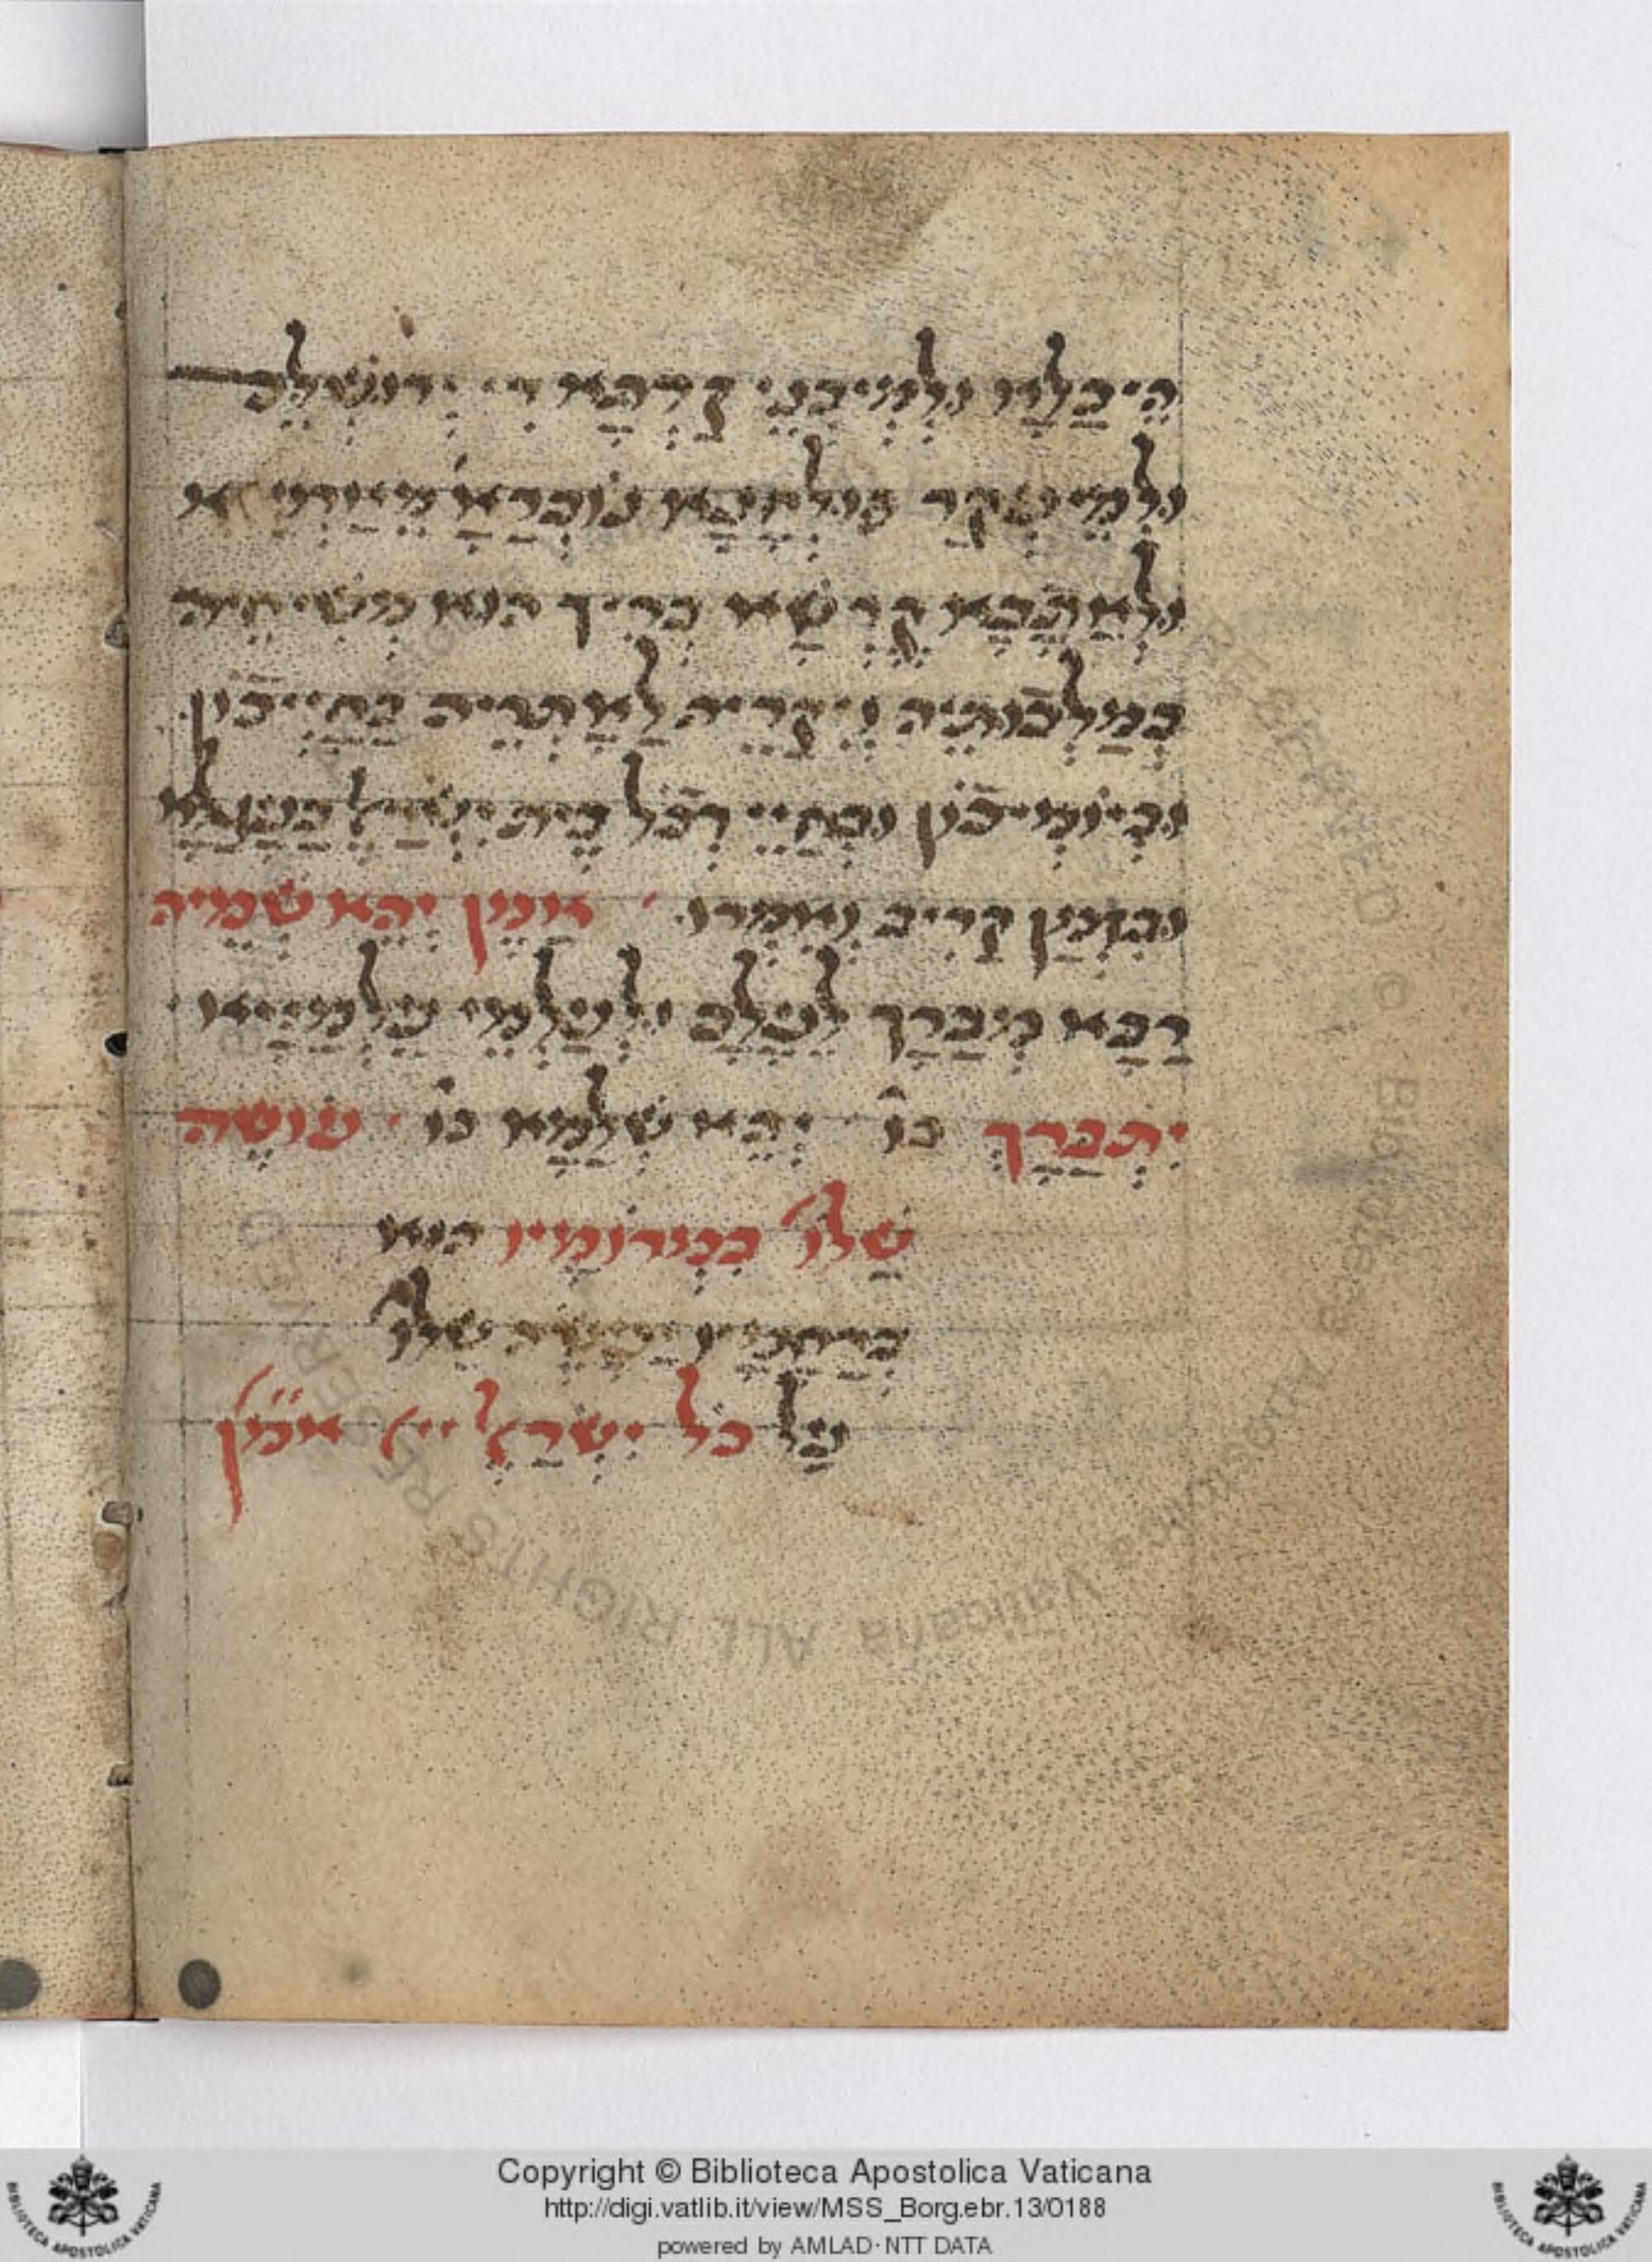 הֵיכְלָא וּלְמִיבְנֵי קַרְתָּא דִירוּשְׁלֵם
וּלְמֶעְקַר פּוּלְחָנָא נוּכְרָאָה מֵאַרְעָא
וּלְאַתָבָא קֻדְשָׁא בְּרִיךְ הוּא מְשִׁיחֵיהּ
בְּמַלְכוּתֵיהּ וִיקָרֵיהּ לְאַתְרֵיהּ בְּחַיֵיכוֹן
וּבְיוֹמֵיכוֹן וּבְחַיֵי דְכָל בֵּית יִשְׂרָאֵל בַּעֲגָלָא
וּבִזְמַן קָרִיב וְאִמְרוּ אָמֵן יְהֵא שְׁמֵיהּ
רַבָּא מְבָרַךְ לְעָלַם וּלְעָלְמֵי עָלְמַיָא
יִתְבָּרַךְ כו יְהֵא שְׁלָמָא כו עוֹשֶׂה
שָׁלוֹ בִּמְרוֹמָיו הוּא
בְּרַחֲמָיו יַעֲשֶׂה שָׁלוֹ
עַל כָּל יִשְׂרָאֵל אמן
Copyright © Biblioteca Apostolica Vaticana
http://digi.vatlib.it/view/MSS_Borg.ebr.13/0188
powered by AMLAD·NTT DATA